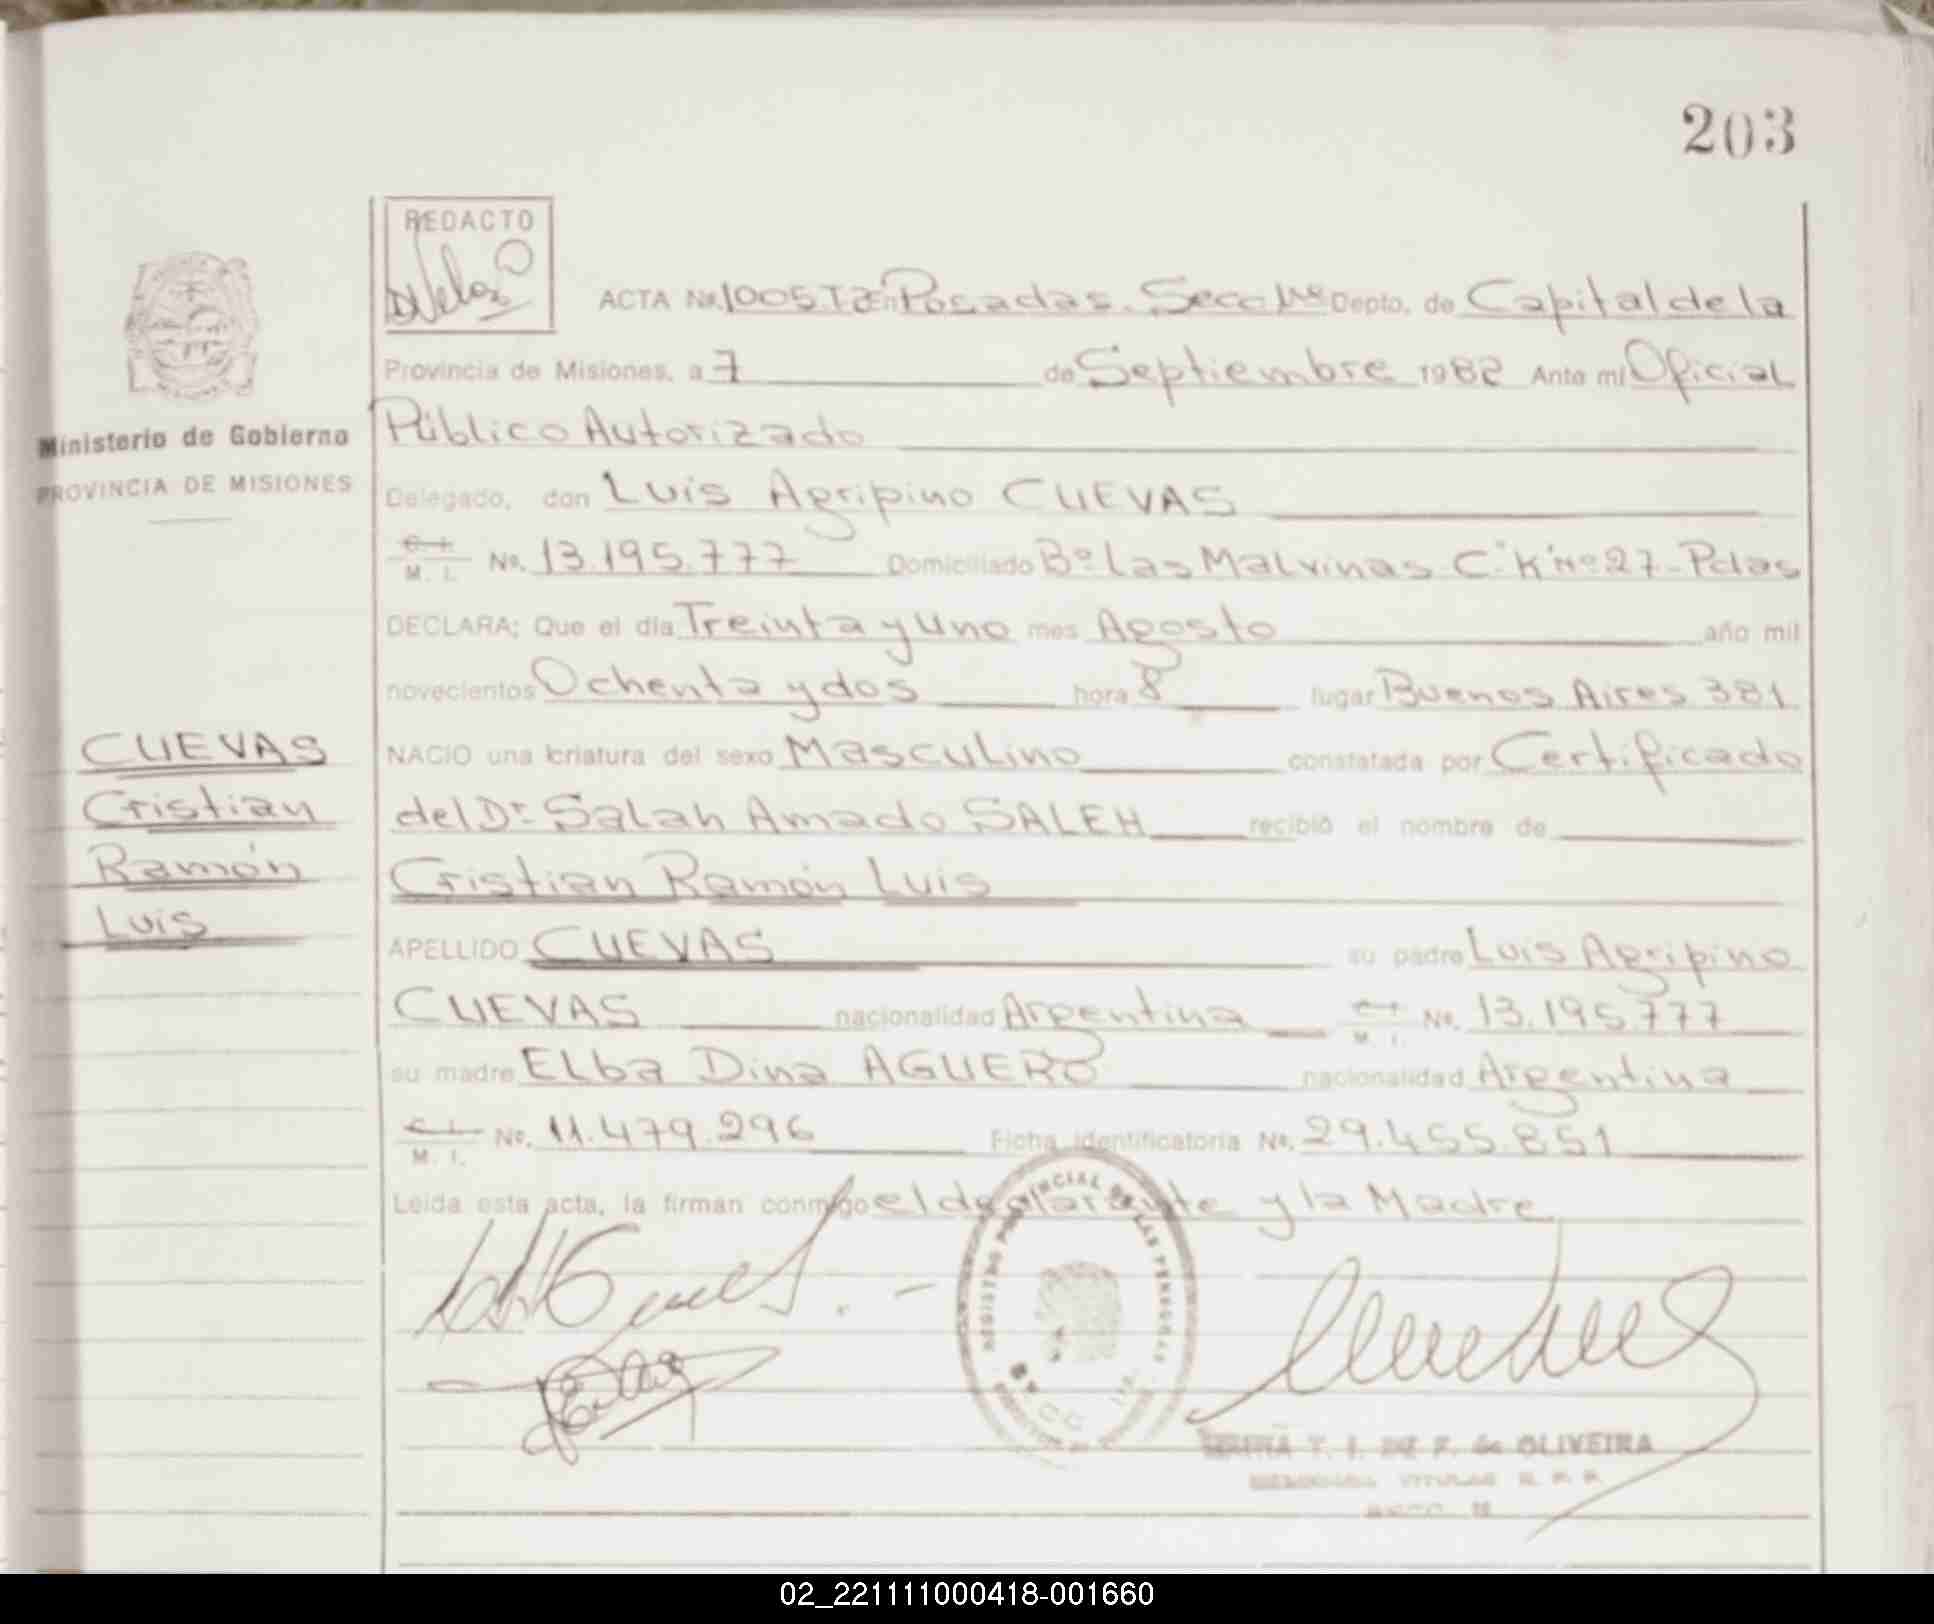 203
REDACTO
ACTA No. 1005 T2 En Posadas. Secc 1ra Depto. de Capital de la
Provincia de Misiones, a 7 de Septiembre 1982 Ante mi Oficial
Público Autorizado
Ministerio de Gobierno
PROVINCIA DE MISIONES
Delegado, don Luis Agripino CUEVAS
C. I. M. I. No. 13.195.777 Domiciliado Bº Las Malvinas C."K" Nº 27 - Pdas
DECLARA; Que el día Treinta y Uno mes Agosto año mil
novecientos Ochenta y dos hora 8 lugar Buenos Aires 381
NACIO una criatura del sexo Masculino constatada por Certificado
del Dr. Salah Amado SALEH recibió el nombre de
Cristian Ramón Luis
CUEVAS
Cristian
Ramón
Luis
APELLIDO CUEVAS su padre Luis Agripino
CUEVAS nacionalidad Argentina C. I. M. I. No. 13.195.777
su madre Elba Dina AGUERO nacionalidad Argentina
C. I. M. I. No. 11.479.296 Ficha identificatoria No. 29.455.851
Leída esta acta, la firman conmigo el declarante y la Madre
REGISTRO PROVINCIAL DE LAS PERSONAS
T. I. F. de OLIVEIRA
02_221111000418-001660